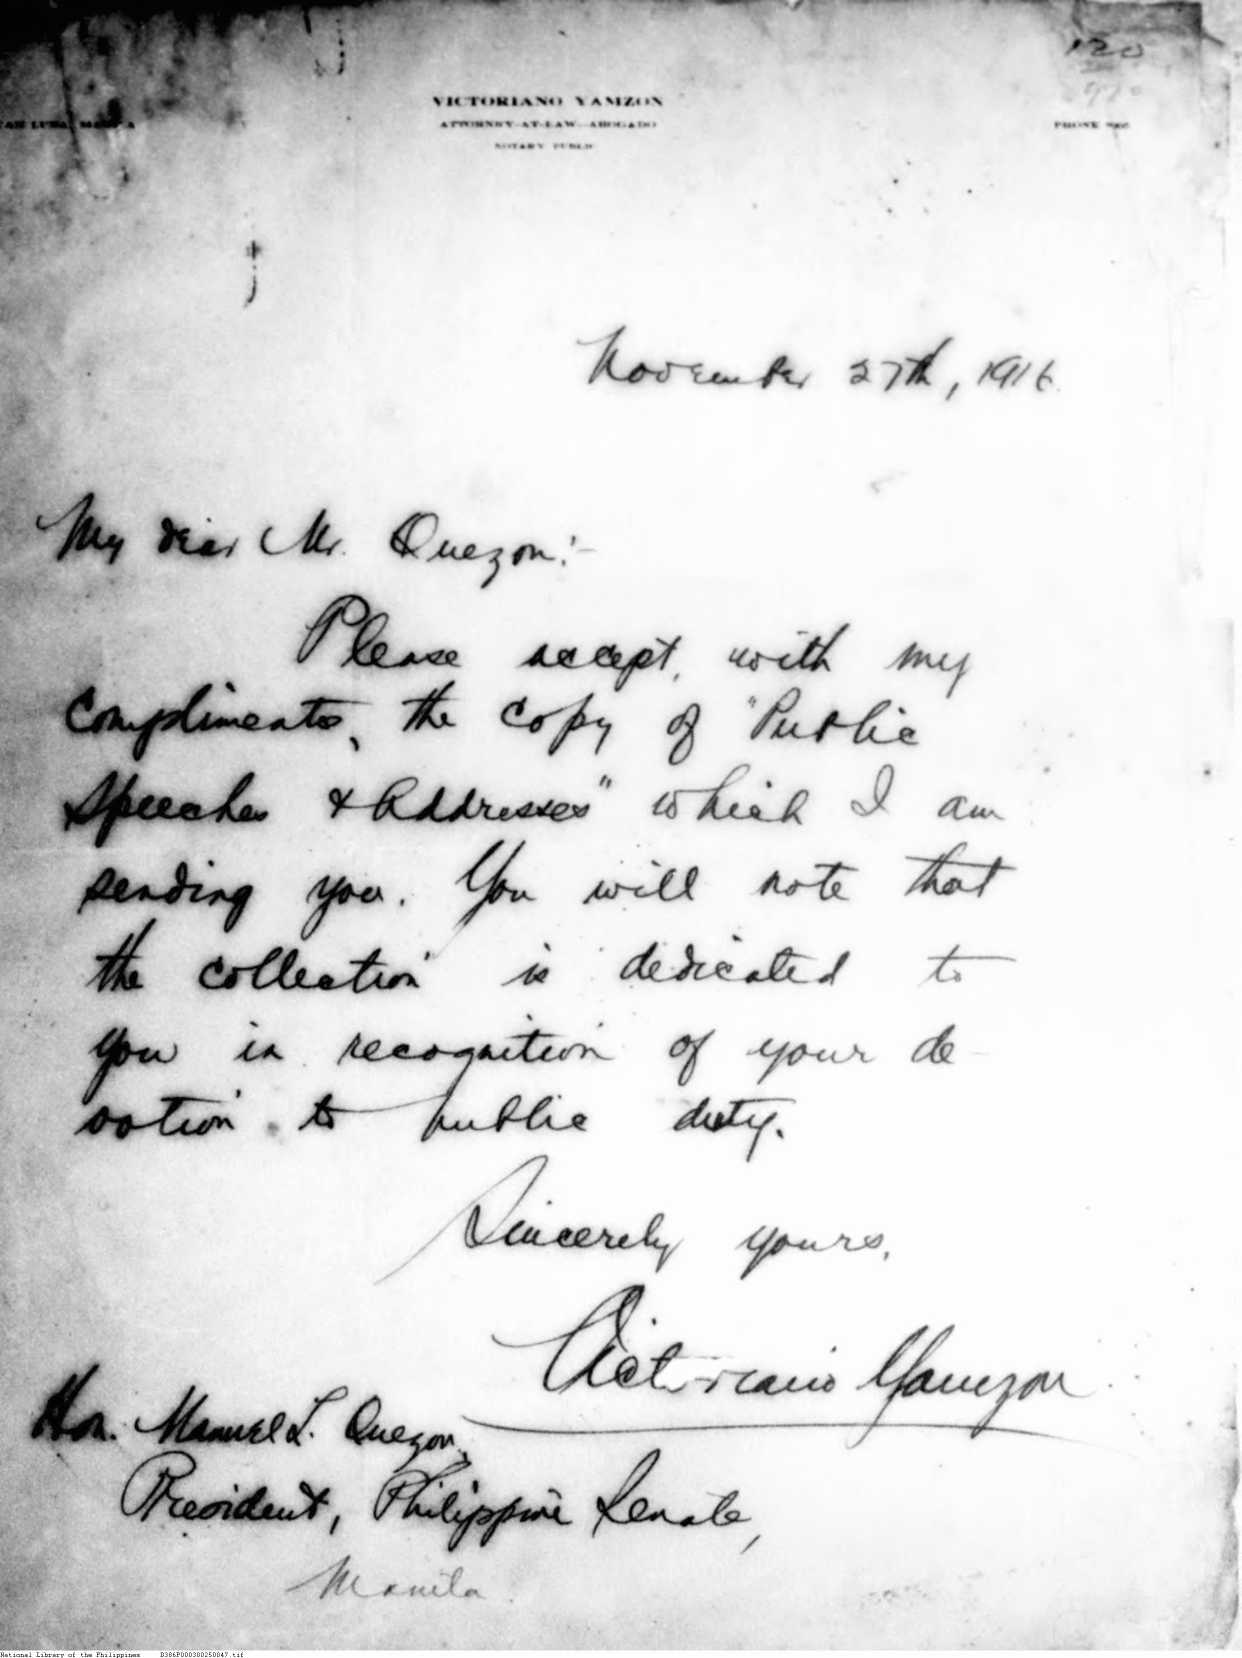 120
VICTORIANO YAMZON
ATTORNEY-AT-LAW--ABOGADO
NOTARY PUBLIC
PHONE
November 27th, 1916.
My dear Mr. Quezon:-
Please accept, with my
compliments, the copy of "Public
Speeches & Addresses" which I am
sending you. You will note that
the collection is dedicated to
you in recognition of your de-
votion to public duty.
Sincerely yours,
Victoriano Yamzon
Hon. Manuel L. Quezon,
President, Philippine Senate,
Manila.
National Library of the Philippines D386P000300250047.tif